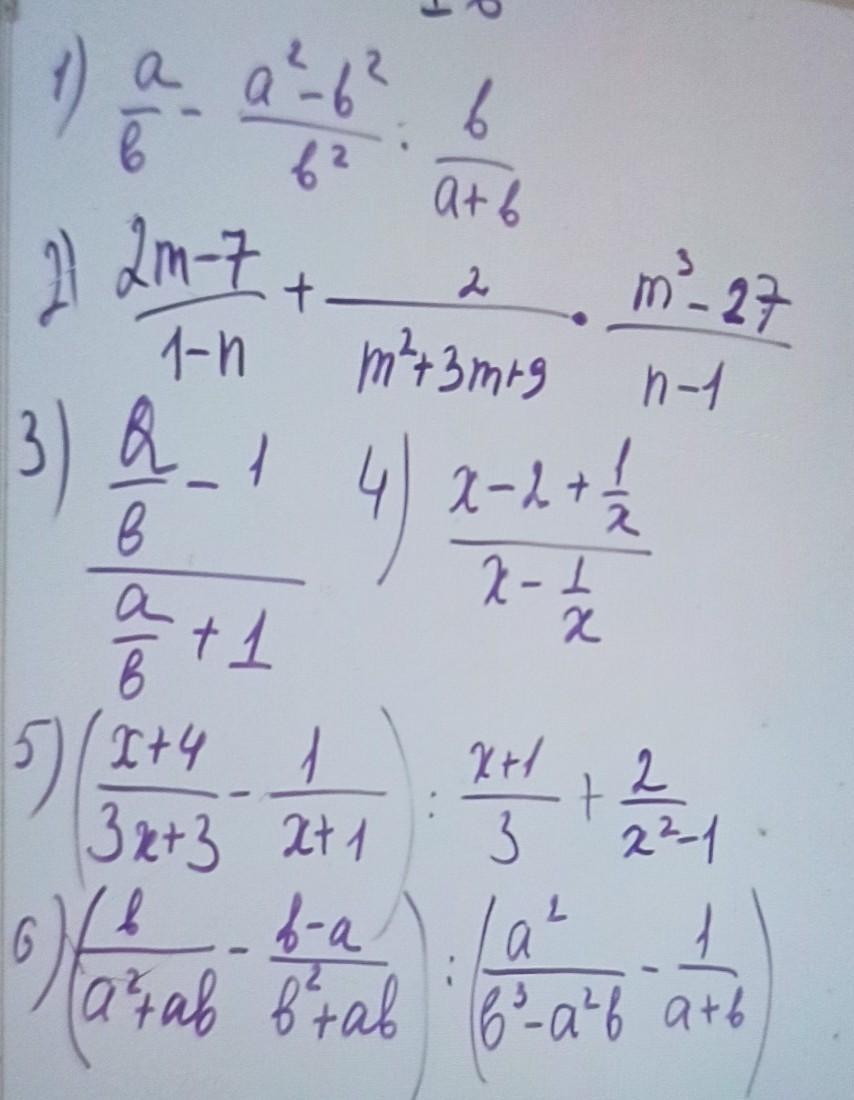 1) a/b - (a²-b²)/b² : b/(a+b)
2) (2m-7)/(1-n) + 2/(m²+3m+9) · (m³-27)/(n-1)
3) (a/b - 1)/(a/b + 1) 4) (x-2+1/x)/(x-1/x)
5) ((x+4)/(3x+3) - 1/(x+1)) : (x+1)/3 + 2/(x²-1)
6) (b/(a²+ab) - (b-a)/(b²+ab)) : (a²/(b³-a²b) - 1/(a+b))